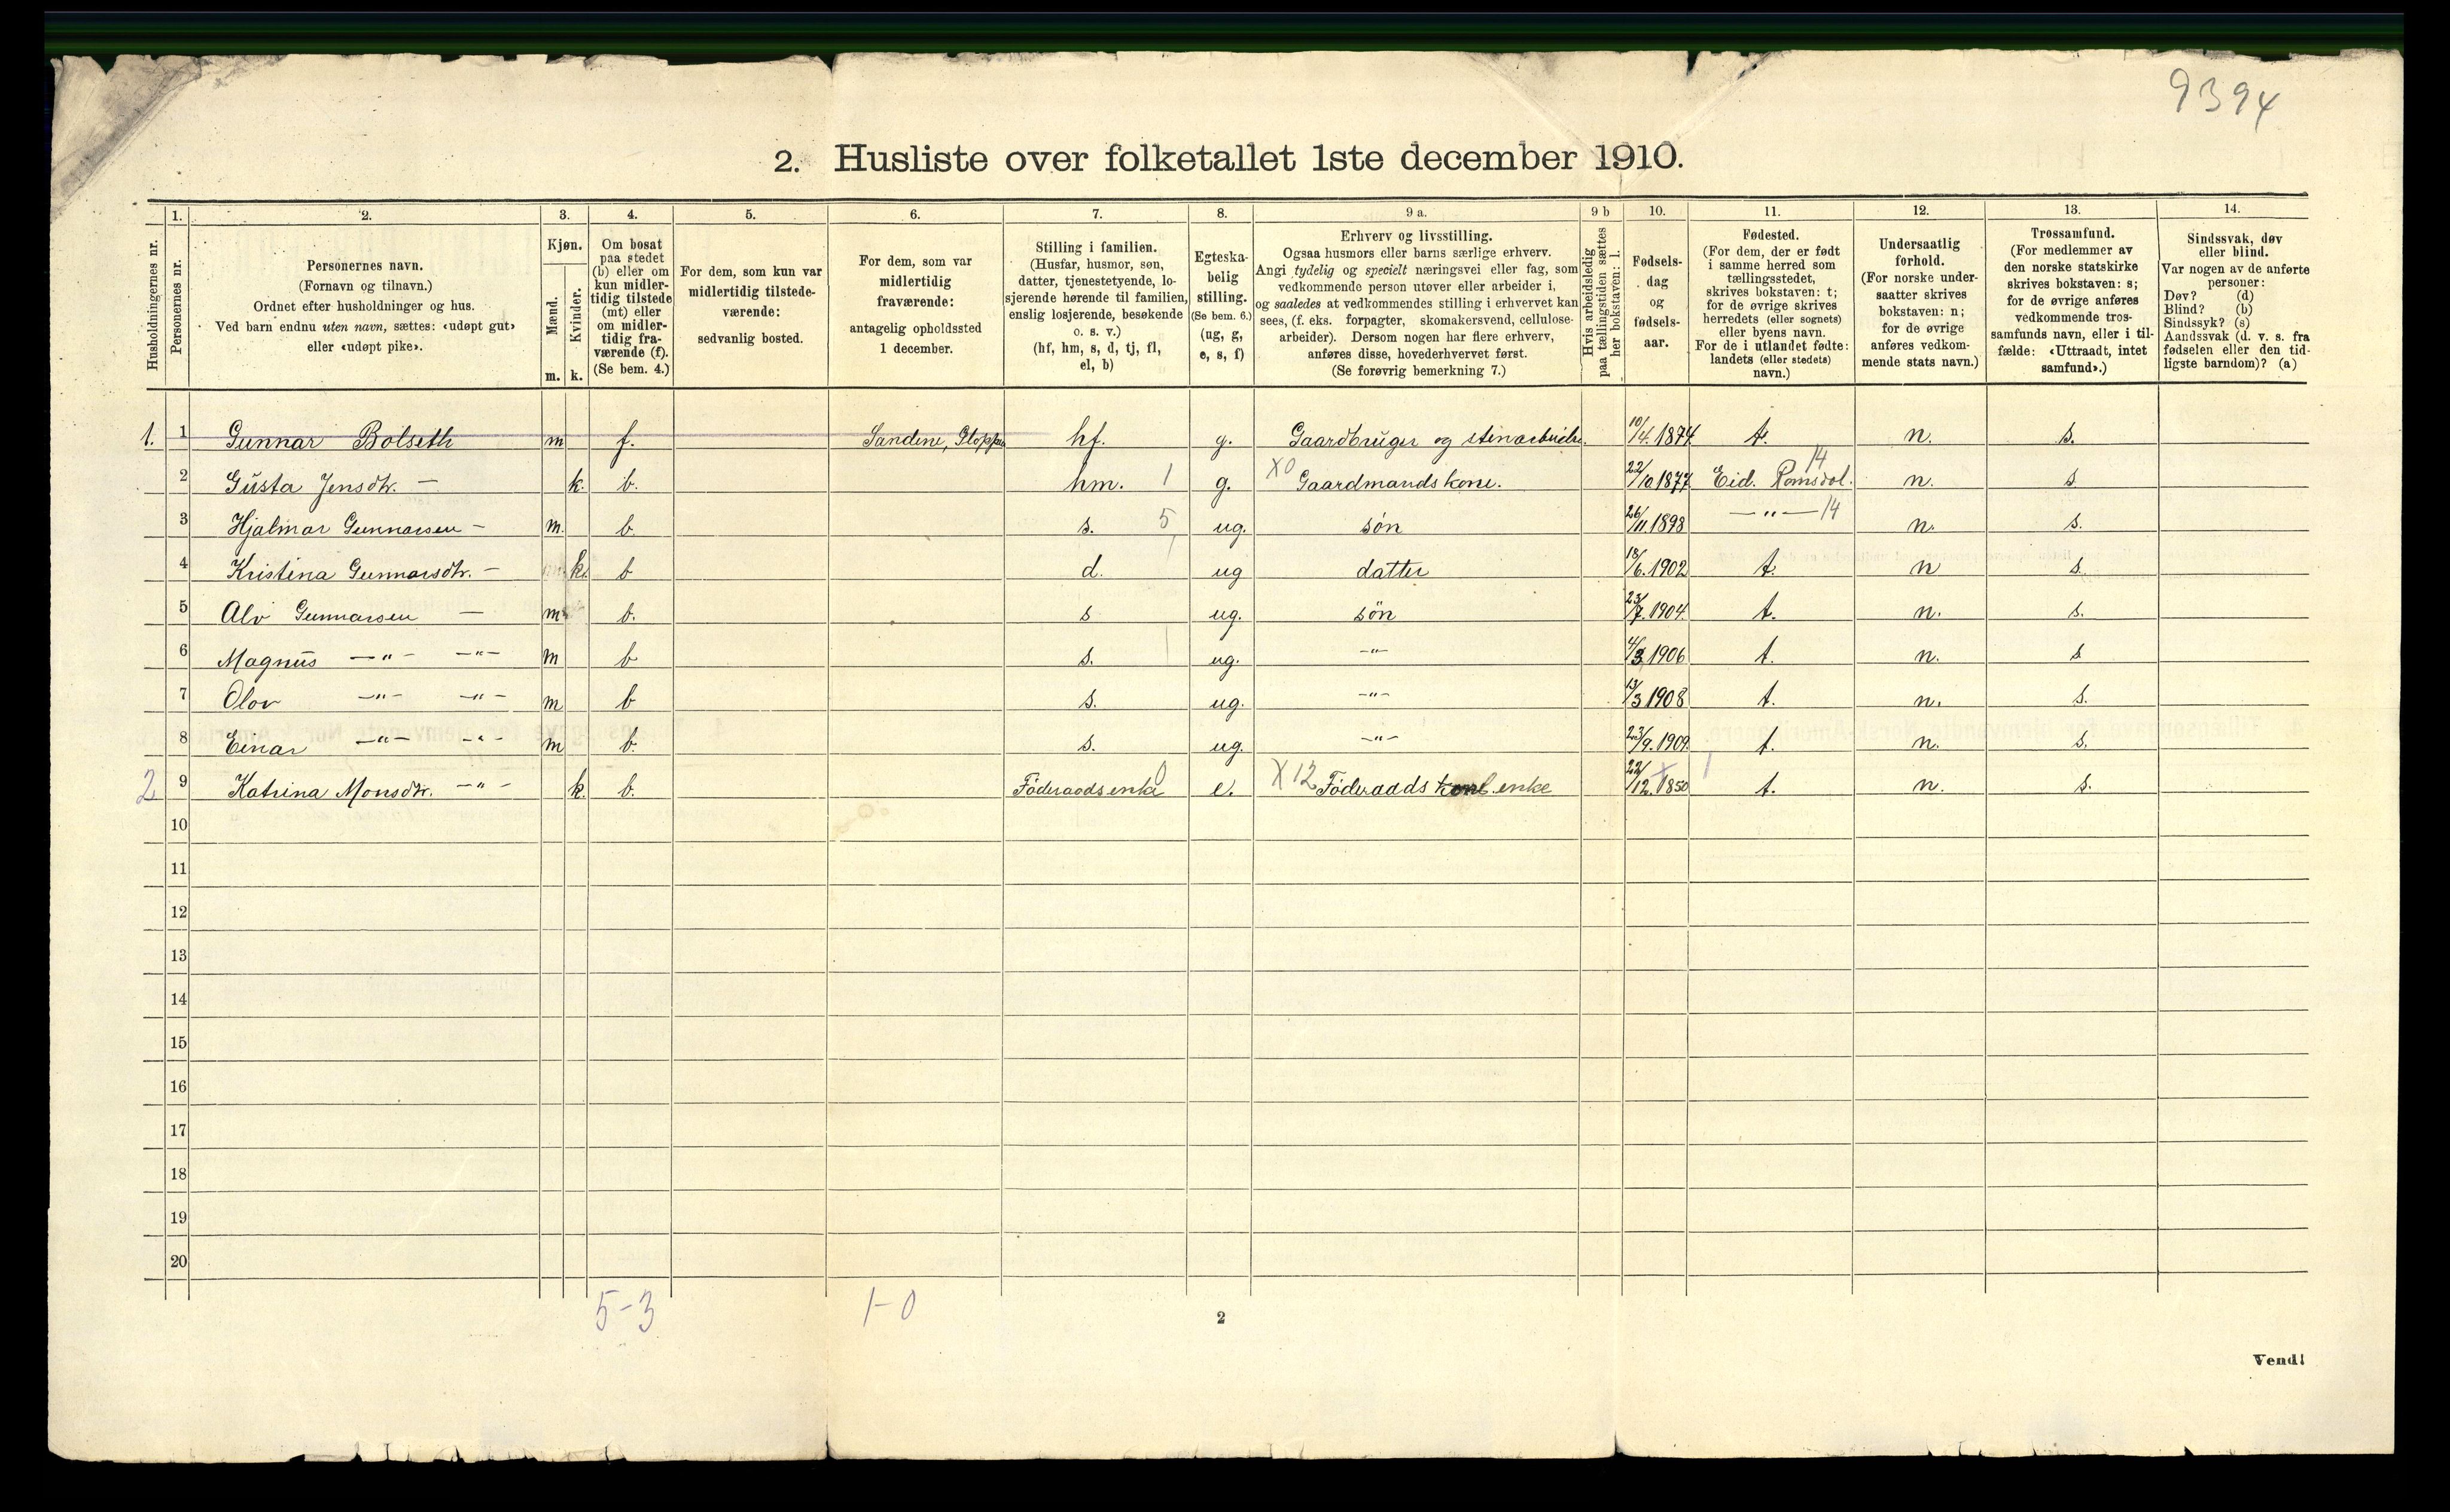 9394
2. Husliste over folketallet 1ste december 1910.
Husholdningernes nr.
1. 2. 3. 4. 5. 6. 7. 8. 9 a. 9 b 10. 11. 12. 13. 14.
Personernes nr.
Personernes navn.
(Fornavn og tilnavn.)
Ordnet efter husholdninger og hus.
Ved barn endnu uten navn, sættes: «udøpt gut»
eller «udøpt pike».
Kjøn.
Mænd.
Kvinder.
m. k.
Om bosat
paa stedet
(b) eller om
kun midler-
tidig tilstede
(mt) eller
om midler-
tidig fra-
værende (f).
(Se bem. 4.)
For dem, som kun var
midlertidig tilstede-
værende:
sedvanlig bosted.
For dem, som var
midlertidig
fraværende:
antagelig opholdssted
1 december.
Stilling i familien.
(Husfar, husmor, søn,
datter, tjenestetyende, lo-
sjerende hørende til familien,
enslig losjerende, besøkende
o. s. v.)
(hf, hm, s, d, tj, fl,
el, b)
Egteska-
belig
stilling.
(Se bem. 6.)
(ug, g,
e, s, f)
Erhverv og livsstilling.
Ogsaa husmors eller barns særlige erhverv.
Angi tydelig og specielt næringsvei eller fag, som
vedkommende person utøver eller arbeider i,
og saaledes at vedkommendes stilling i erhvervet kan
sees, (f. eks. forpagter, skomakersvend, cellulose-
arbeider). Dersom nogen har flere erhverv,
anføres disse, hovederhvervet først.
(Se forøvrig bemerkning 7.)
Hvis arbeidsledig
paa tællingstiden sættes
her bokstaven: l.
Fødsels-
dag
og
fødsels-
aar.
Fødested.
(For dem, der er født
i samme herred som
tællingsstedet,
skrives bokstaven: t;
for de øvrige skrives
herredets (eller sognets)
eller byens navn.
For de i utlandet fødte:
landets (eller stedets)
navn.)
Undersaatlig
forhold.
(For norske under-
saatter skrives
bokstaven: n;
for de øvrige
anføres vedkom-
mende stats navn.)
Trossamfund.
(For medlemmer av
den norske statskirke
skrives bokstaven: s;
for de øvrige anføres
vedkommende tros-
samfunds navn, eller i til-
fælde: «Uttraadt, intet
samfund».)
Sindssvak, døv
eller blind.
Var nogen av de anførte
personer:
Døv? (d)
Blind? (b)
Sindssyk? (s)
Aandssvak (d. v. s. fra
fødselen eller den tid-
ligste barndom)? (a)
1. 1 Gunnar Bolseth m f. Sandene, Gloppen hf. g. Gaardbruger og stenarbeider. 10/4.1874 t. n. s.
2 Gusta Jensdtr. — k. b. hm. 1 g. X0 Gaardmandskone. 22/10.1877 Eid. Romsdal. 14 n. s
3 Hjalmar Gunnarsen — m. b. s. 5 ug. søn 26/11.1898 — " — 14 n. s.
4 Kristina Gunnarsdtr. — k. b d. ug datter 18/6.1902 t. n s
5 Alv Gunnarsen — m b. s ug. søn 23/7.1904. t. n. s.
6 Magnus — " — — " — m b s. ug. — " — 4/3 1906 t. n. s
7 Olav — " — — " — m b s. ug. — " — 13/3 1908 t. n. s.
8 Einar — " — — " — m b. s. ug. — " — 23/9.1909. t. n. s.
2 9 Katrina Monsdtr. — " — k. b. Föderaadsenke 0 e. X12 Föderaads kone enke 22/12.1850 t. n. s.
10
11
12
13
14
15
16
17
18
19
20
5-3 1-0
2
Vend!